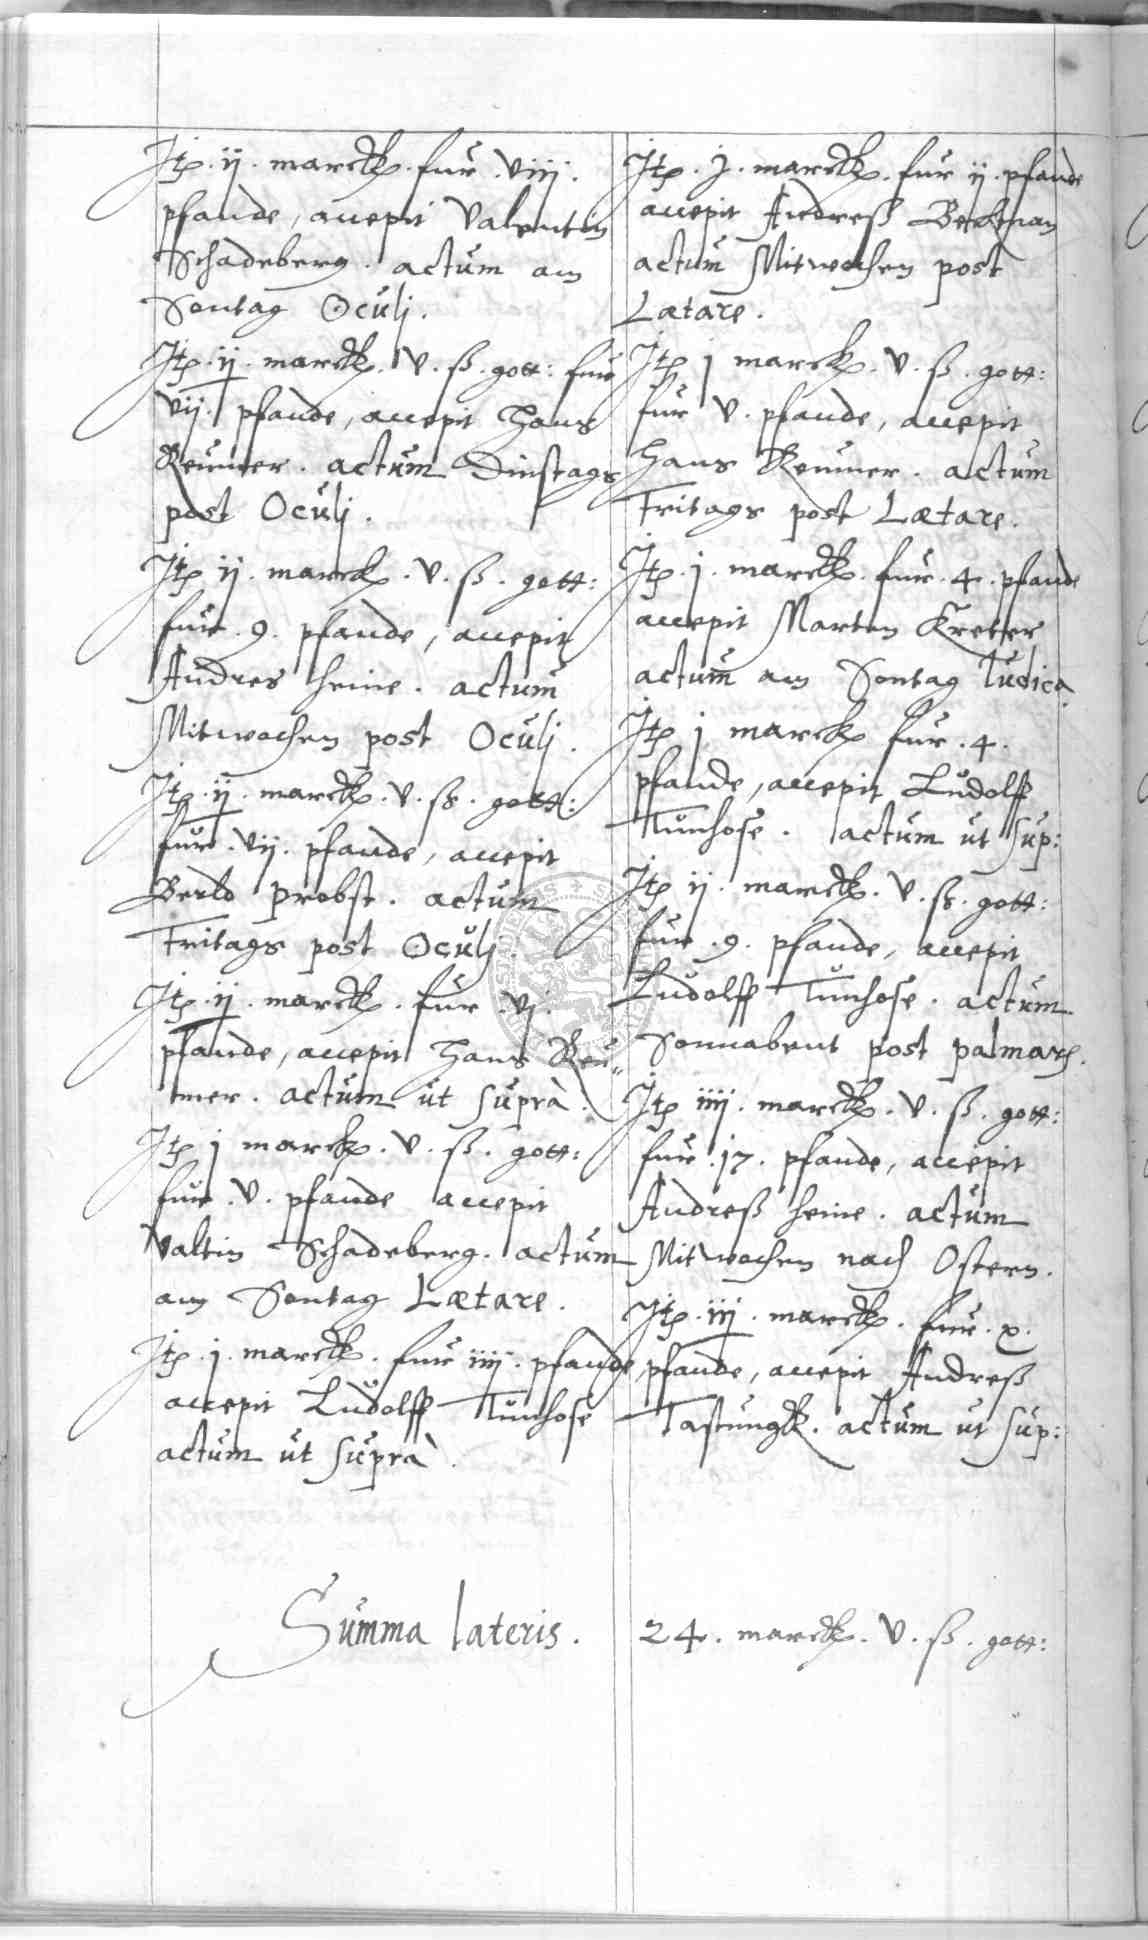 Jtẽ . ij . marck . fur . viij .
pfande, accepit Valentin
Schadeberg . actum am
Sontag Oculj .
Jtẽ . ij . marck . v . ß . gott: fur
vij . pfande, accepit Hans
Reumer . actum Dinstags
post Oculj .
Jtẽ ij . marck . v . ß . gott:
fur . 9 . pfande, accepit
Andres Heine . actum
Mitwochen post Oculj .
Jtẽ . ij . marck . v . ß . gott:
fur . vij . pfande, accepit
Berld Probst . actum
Fritags post Oculj .
Jtẽ . ij . marck . fur . vj .
pfande, accepit Hans Reu„
mer . actum ut suprà .
Jtẽ j marck . v . ß . gott:
fur . v . pfande accepit
Valtin Schadeberg . actum
am Sontag Lætare .
Jtẽ . j . marck . fur iiij . pfande
accepit Ludolff Tunhose
actum ut suprà .
Jtẽ . j . marck . fur ij . pfande
accepit Andreß
actum Mitwochen post
Lætare .
Jtẽ j marck . v . ß . gott:
fur v . pfande, accepit
Hans Reumer . actum
Fritags post Lætare .
Jtẽ . j . marck . fur . 4 . pfande
accepit Marten Kreter
actum am Sontag Iudica
Jtẽ j marck fur . 4 .
pfande, accepit Ludolff
Tunhose . actum ut sup:
Jtẽ ij . marck . v . ß . gott:
fur . 9 . pfande, accepit
Ludolff Tunhose . actum
Sonnabent post palmarũ .
Jtẽ iiij . marck . v . ß . gott:
fur . 17 . pfande, accepit
Andreß Heine . actum
Mitwochen nach Ostern .
Jtẽ . iij . marck . fur . x .
pfande, accepit Andreß
Tastungk . actum ut sup:
Summa lateris . 24 . marck . v . ß . gott: